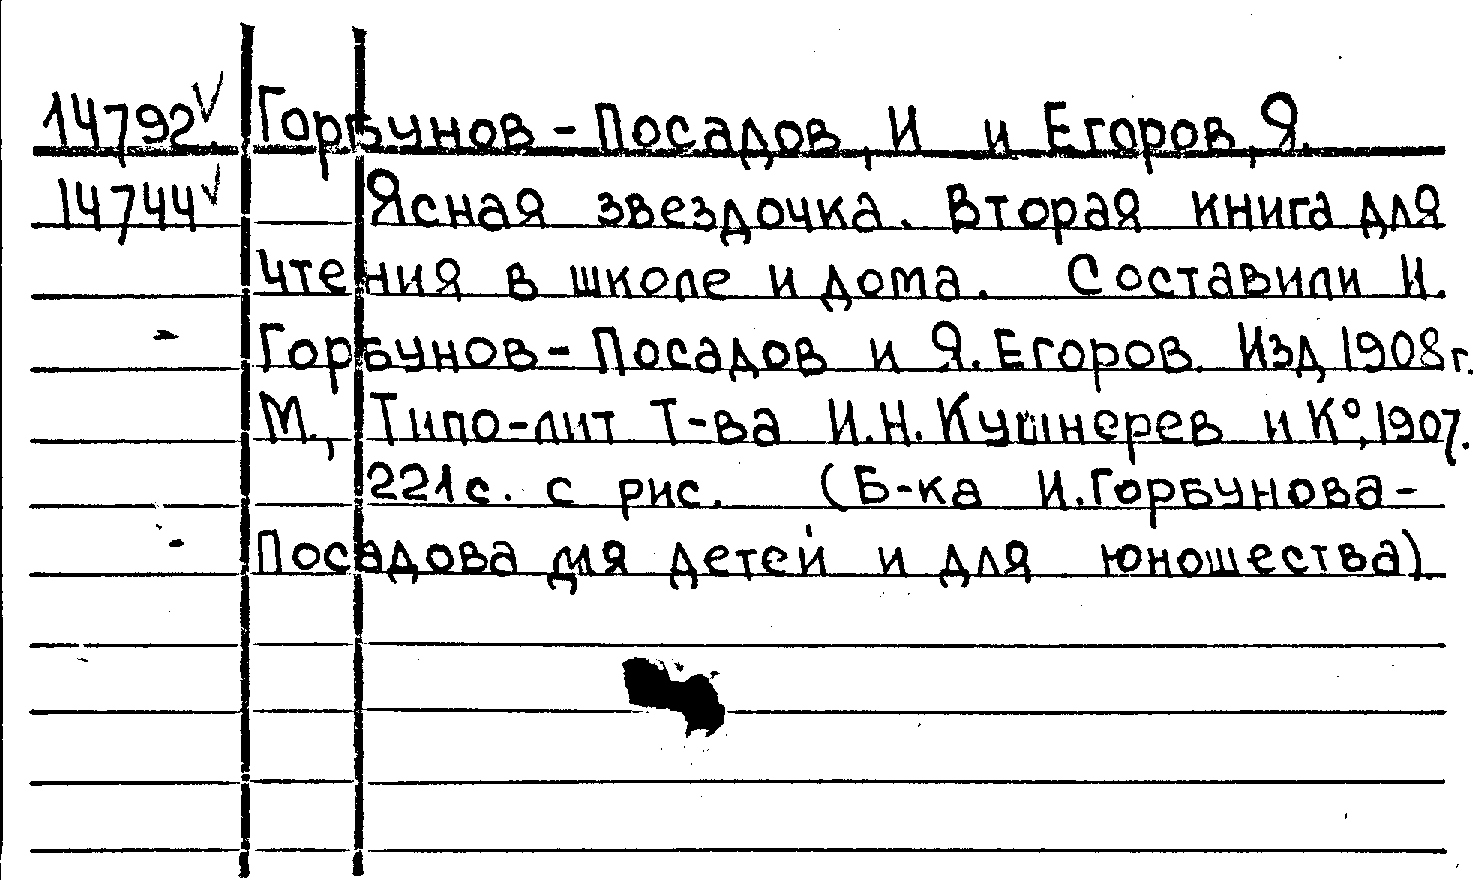 14792 √ Горбунов-Посадов, И и Егоров, Я.
14744 √ Ясная звездочка. Вторая книга для
чтения в школе и дома. Составили И.
Горбунов-Посадов и Я. Егоров. Изд 1908г.
М., Типо-лит Т-ва И.Н. Кушнерев и К°, 1907.
221с. с рис. (Б-ка И.Горбунова-
Посадова для детей и для юношества)